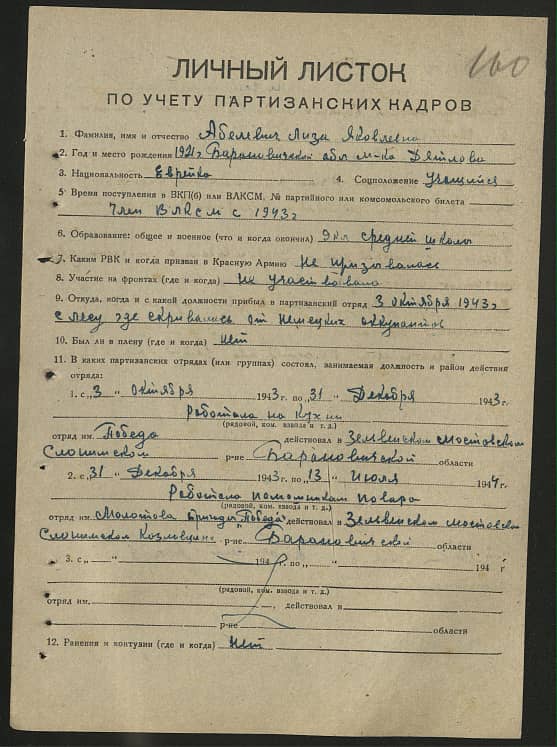 160
ЛИЧНЫЙ ЛИСТОК
ПО УЧЕТУ ПАРТИЗАНСКИХ КАДРОВ
1. Фамилия, имя и отчество Абелевич Лиза Яковлевна
2. Год и место рождения 1921г Барановичской обл м-ко Дятлово
3. Национальность Еврейка 4. Соцположение Учащийся
5. Время поступления в ВКП(б) или ВЛКСМ, № партийного или комсомольского билета
Член ВЛКСМ с 1943г
6. Образование: общее и военное (что и когда окончил) 9 кл средней школы
7. Каким РВК и когда призван в Красную Армию Не призывалась
8. Участие на фронтах (где и когда) Не участвовала
9. Откуда, когда и с какой должности прибыл в партизанский отряд 3 октября 1943г
с лесу где скривалась от Немецких оккупантов
10. Был ли в плену (где и когда) Нет
11. В каких партизанских отрядах (или группах) состоял, занимаемая должность и район действия
отряда:
1. с „3 " октября 1943г. по „31 " Декабря 1943г.
Работала на кухни
(рядовой, ком. взвода и т. д.)
отряд им. Победа действовал в Зельвенском мостовском
Слонимском р-не Барановичской области
2. с „31 " Декабря 1943г. по „13 " Июля 1944г.
Работала помошникам повара
(рядовой, ком. взвода и т. д.)
отряд им. Молотова бригады "Победа" действовал в Зельвенском мостовском
Слонимском р-не Барановичской области
3. с „ " 194 г. по „ " 194 г
(рядовой, ком. взвода и т. д.)
отряд им. , действовал в
р-не области
12. Ранения и контузии (где и когда) Нет